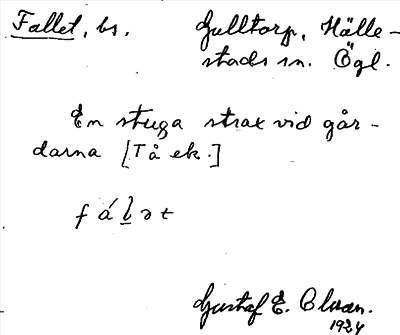 Fallet, bs. Gulltorp, Hälle-
stads sn. Ögl.
En stuga strax vid går-
darna [Tå ek.]
f á l ə t
Gustaf E. Clason.
1924